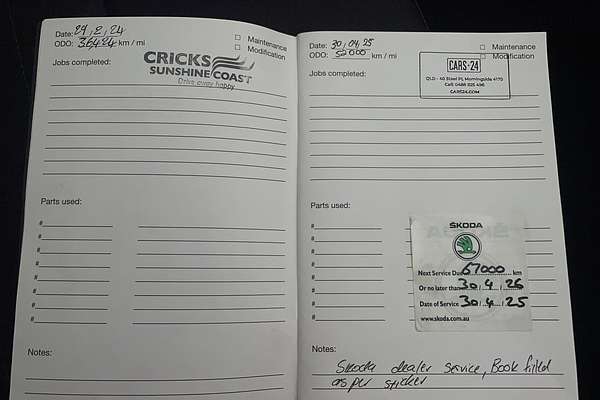 Date: 27, 2, 24
ODO: 36424 km / mi
Maintenance
Modification
Jobs completed:
CRICKS
SUNSHINE COAST
Drive away happy
Parts used:
#
#
#
#
#
#
#
Notes:
Date: 30, 04, 25
ODO: 52000 km / mi
Maintenance
Modification
Jobs completed:
CARS24
QLD - 40 Steel Pl, Morningside 4170
CARS24.COM
Parts used:
#
#
#
#
#
#
#
ŠKODA
Next Service Due 67000 km
Or no later than 30 / 4 / 26
Date of Service 30 / 4 / 25
www.skoda.com.au
Notes:
Skoda dealer service, Book filled
as per sticker